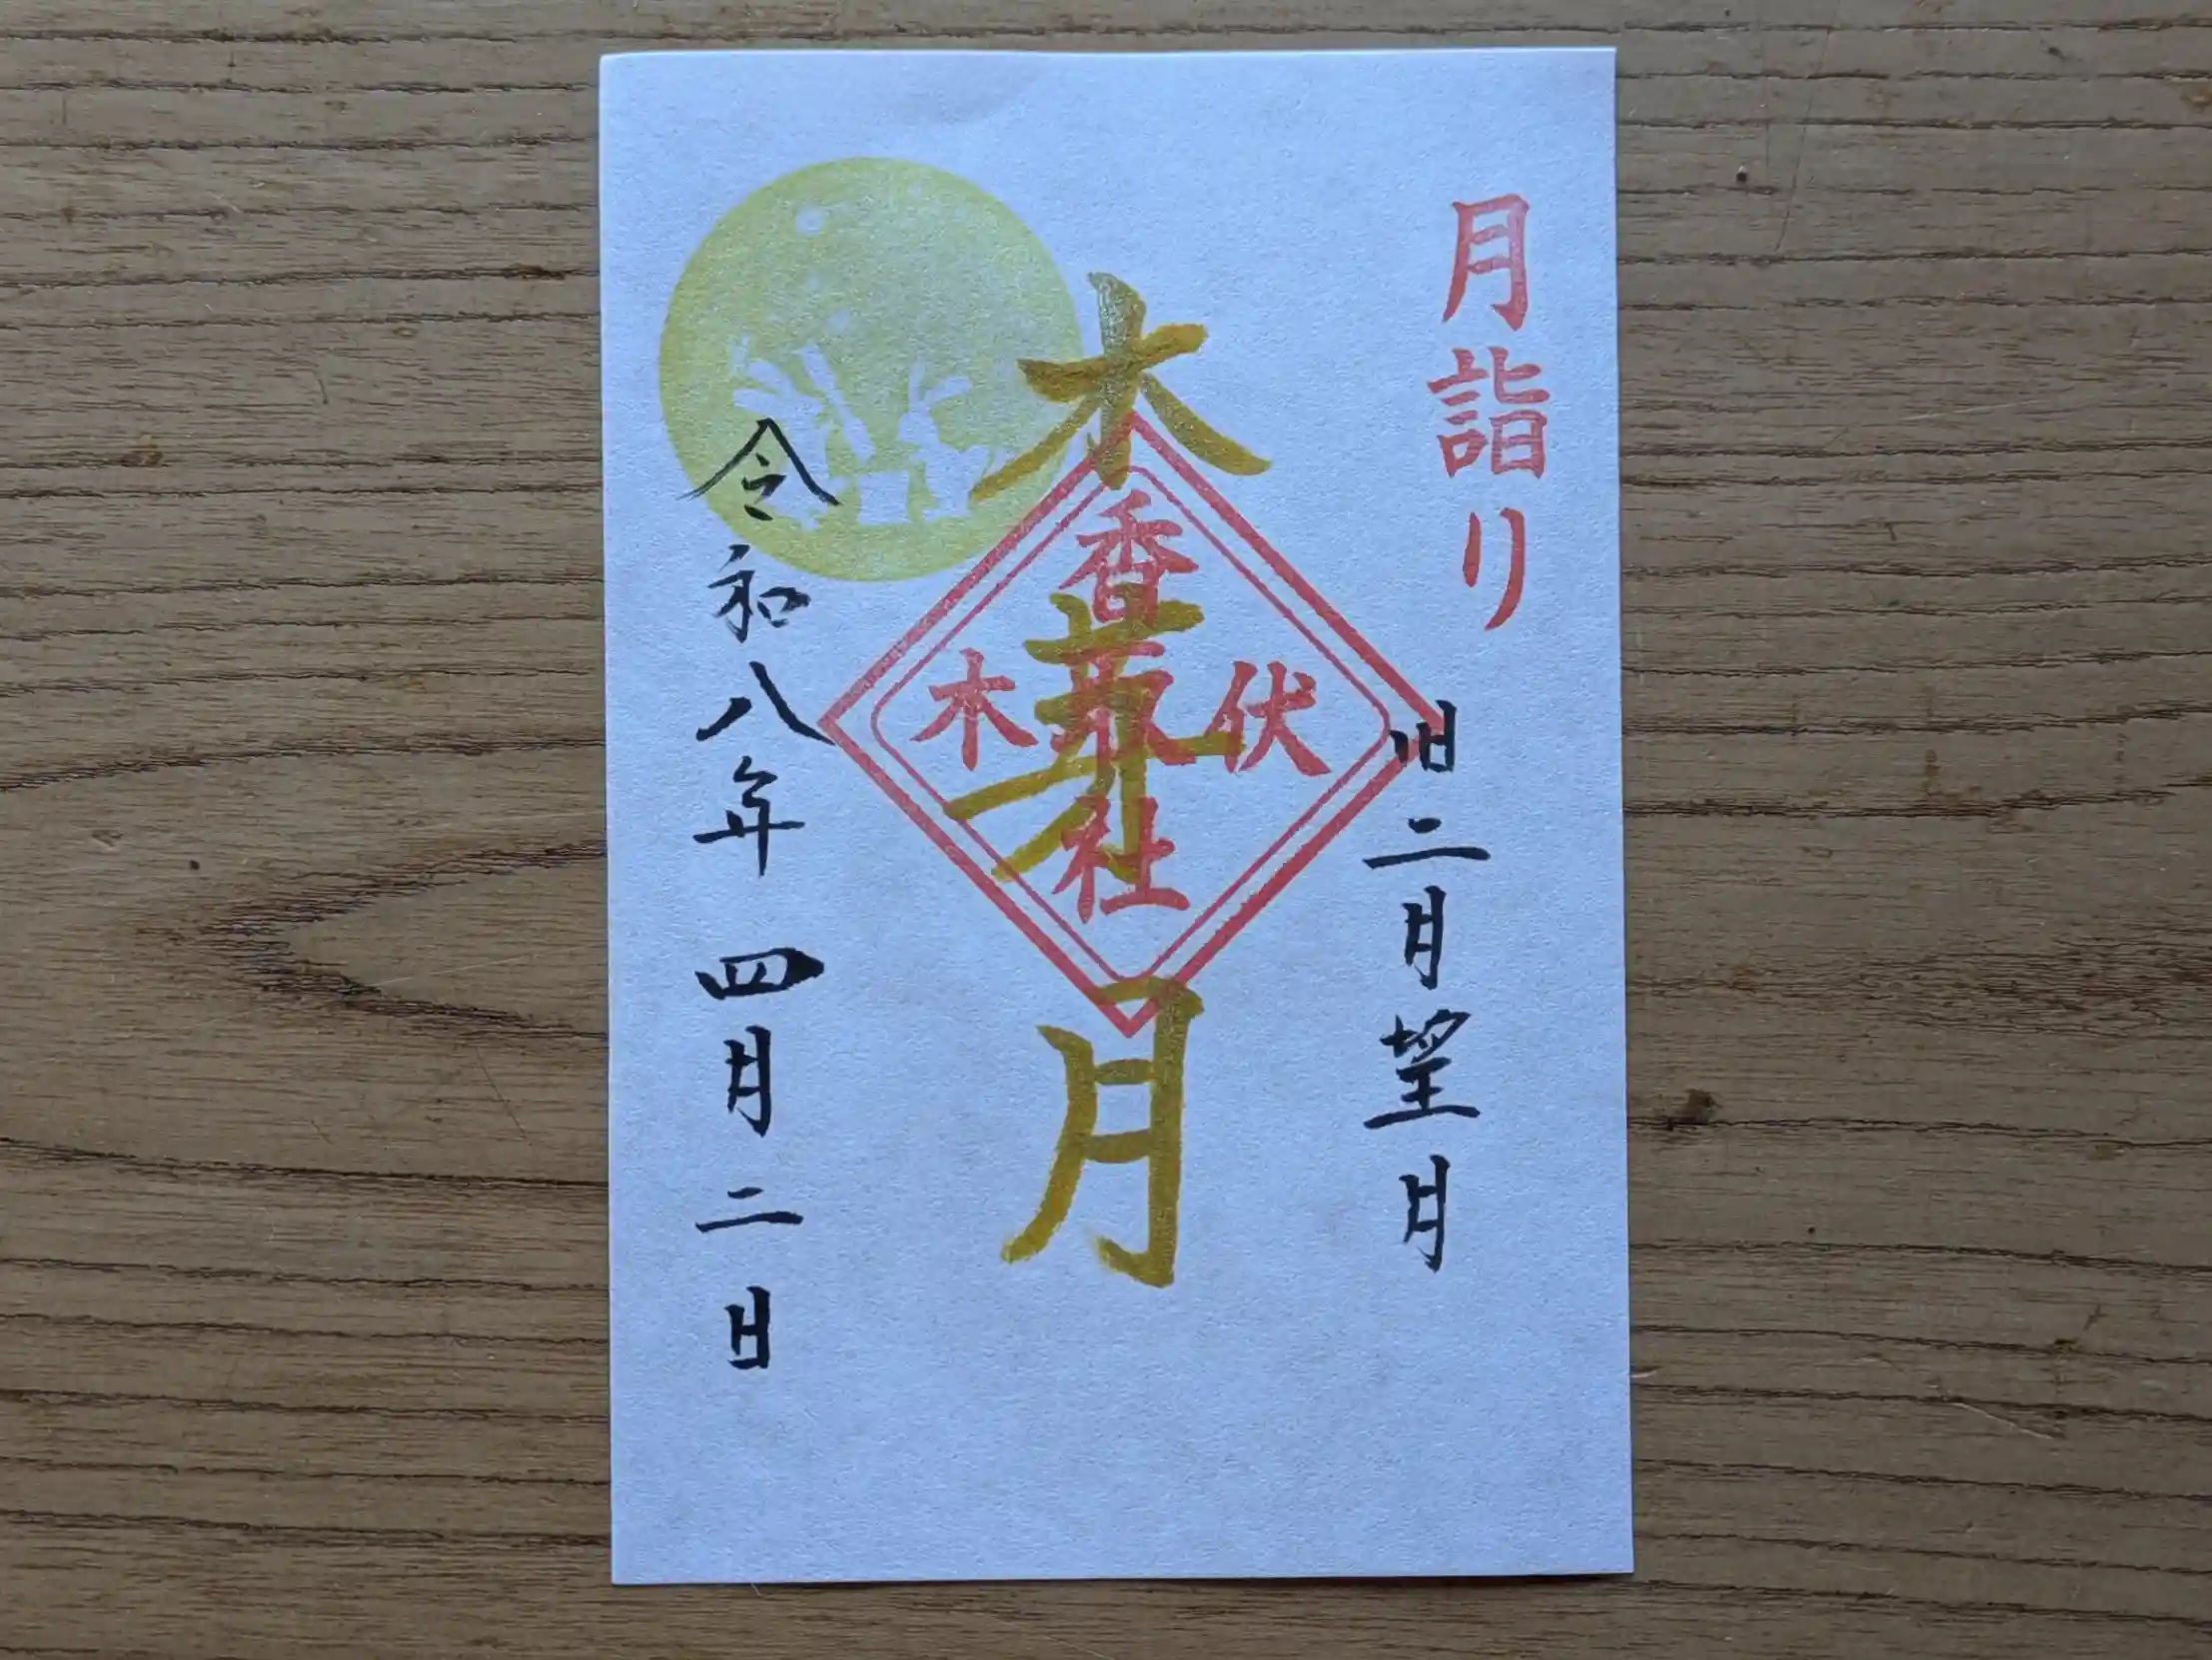 月詣り
旧二月望月
木芽月
伏木
香取社
令和八年四月二日